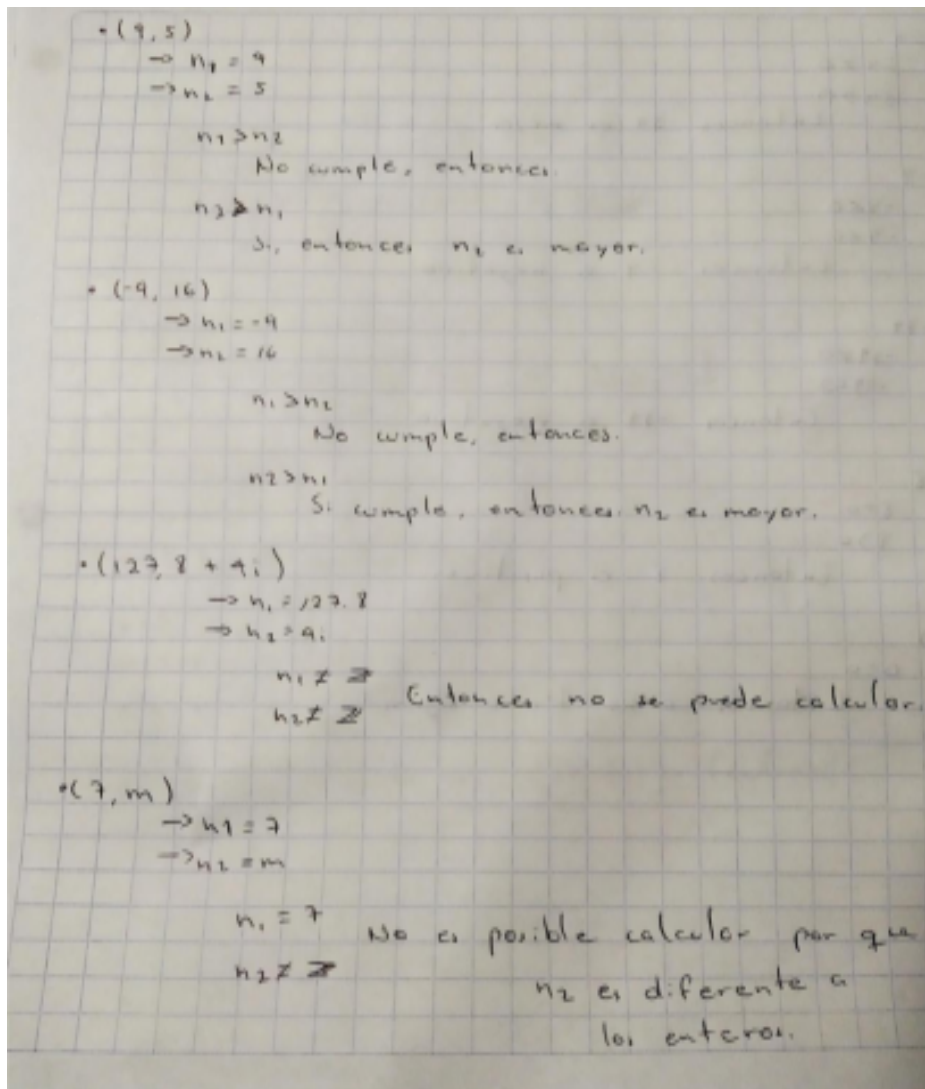 • (9, 5)
→ n₁ = 9
→ n₂ = 5
n₁ > n₂
No cumple, entonces.
n₂ > n₁
Si, entonces n₂ es mayor.
• (-9, 16)
→ n₁ = -9
→ n₂ = 16
n₁ > n₂
No cumple, entonces.
n2 > n₁
Si cumple, entonces n₂ es mayor.
• (127.8 + 9i)
→ n₁ = 127.8
→ n₂ = 9i
n₁ ≠ Z
n₂ ≠ Z Entonces no se puede calcular.
• (7, m)
→ n1 = 7
→ n₂ = m
n₁ = 7 No es posible calcular por que
n₂ ≠ Z n₂ es diferente a
los enteros.